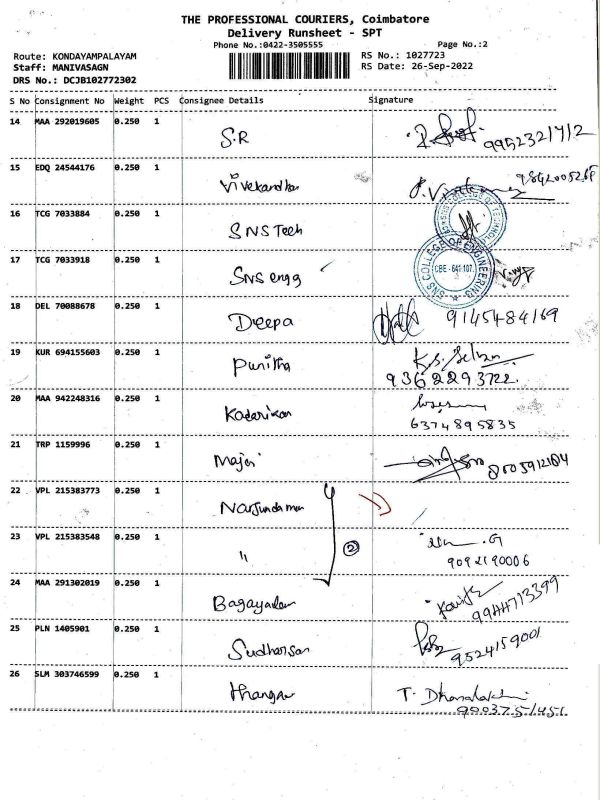 THE PROFESSIONAL COURIERS, Coimbatore
Delivery Runsheet - SPT
Phone No.:0422-3505555 Page No.:2
Route: KONDAYAMPALAYAM RS No.: 1027723
Staff: MANIVASAGN RS Date: 26-Sep-2022
DRS No.: DCJB102772302
S No Consignment No Weight PCS Consignee Details Signature
14 MAA 292019605 0.250 1 S.R 9952321712
15 EDQ 24544176 0.250 1
16 TCG 7033884 0.250 1 SNS Tech
17 TCG 7033918 0.250 1 SNS engg
SNS COLLEGE OF TECHNOLOGY
SNS COLLEGE OF ENGINEERING
CBE - 641 107.
18 DEL 70088678 0.250 1 Deepa 9145484169
19 KUR 694155603 0.250 1 Punitha K.S. Selvan
9362293722.
20 MAA 942248316 0.250 1
6374895835
21 TRP 1159996 0.250 1
22 VPL 215383773 0.250 1
23 VPL 215383548 0.250 1 " 2
9092190006
24 MAA 291302019 0.250 1 9944713399
25 PLN 1405901 0.250 1 Sudharsan 9524159001
26 SLM 303746599 0.250 1 T. Dhanalakshmi
9003751451